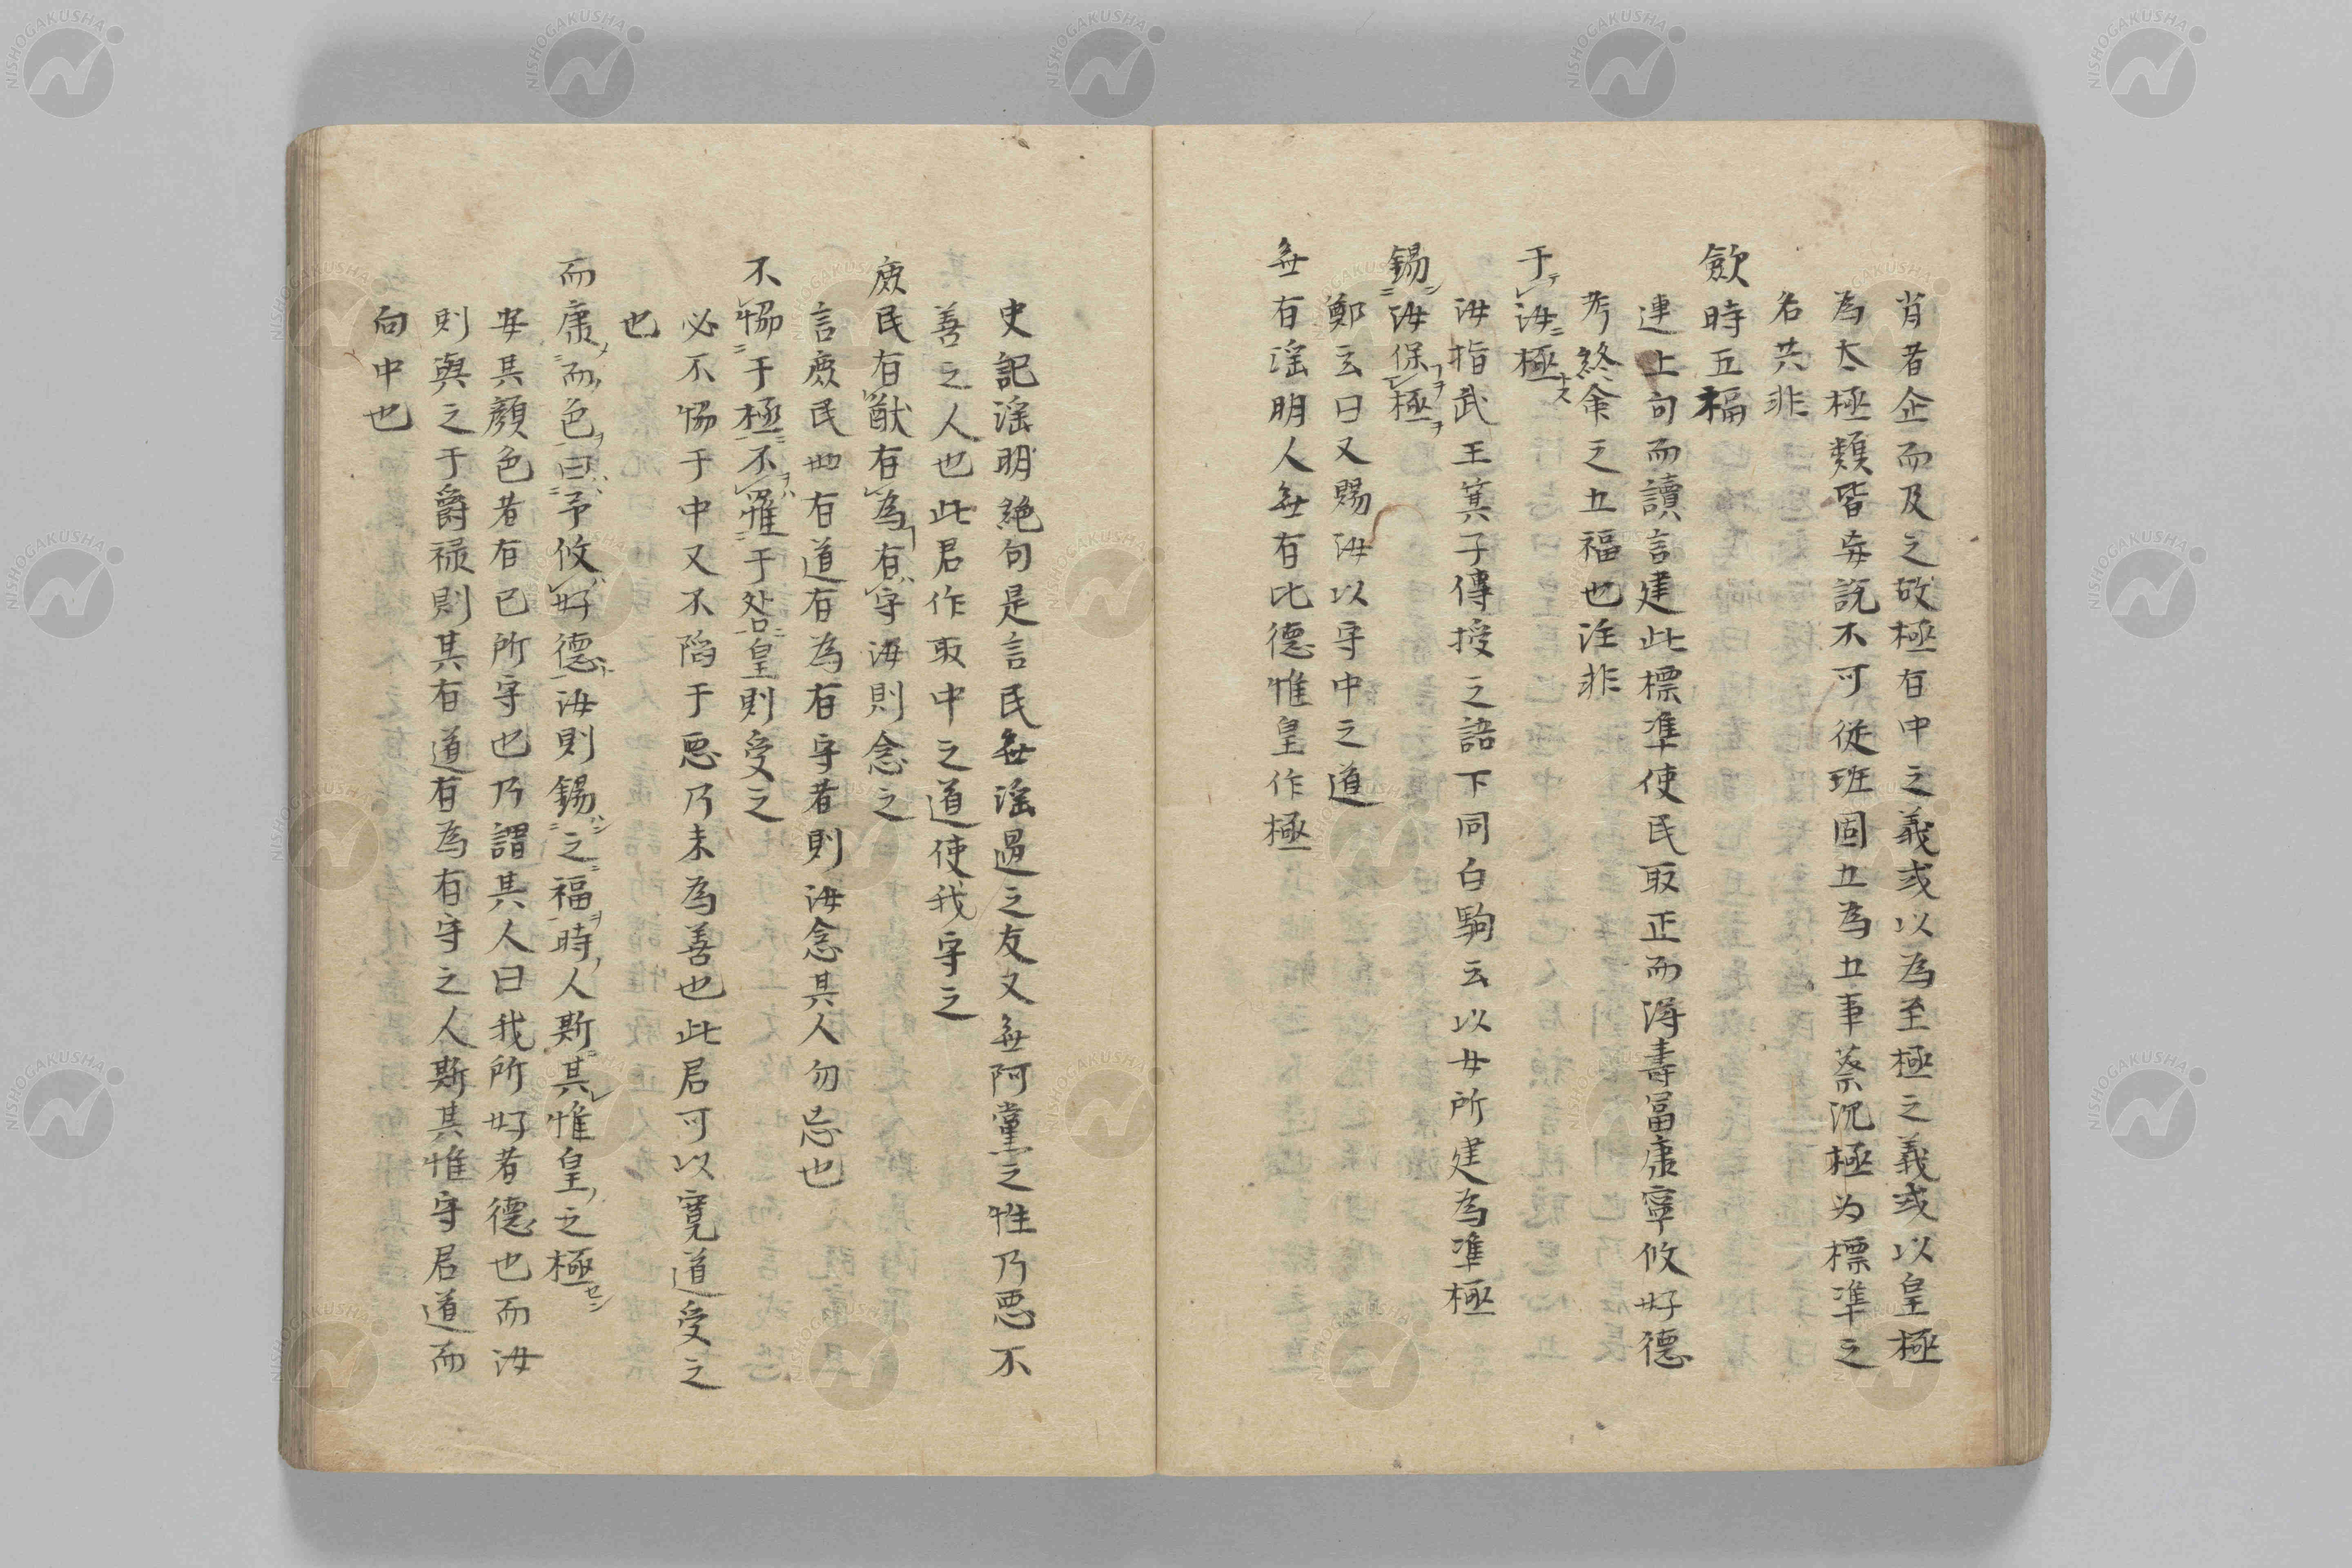 肖者企而及之故極有中之義或以為至極之義或以皇極
為太極類皆妄説不可從班固五為五事蔡沉極为標準之
名共非
歛時五福
連上句而讀言建此標準使民取正而得壽冨康寧攸好德
考終命之五福也注非
于汝極
汝指武王箕子傳授之語下同白駒云以女所建為準極
錫汝保極
鄭玄曰又賜汝以守中之道
無有淫朋人無有比德惟皇作極
史記淫朋絶句是言民無淫過之友又無阿黨之性乃悪不
善之人也此君作取中之道使我守之
庻民有猷有為有守汝則念之
言庻民也有道有為有守者則汝念其人勿忘也
不恊于極不罹于咎皇則受之
必不恊于中又不陷于悪乃未為善也此君可以寛道受之
也
而康而色曰予攸好德汝則錫之福時人斯其惟皇之極
安其顔色者有已所守也乃謂其人曰我所好者德也而汝
則與之于爵禄則其有道有為有守之人斯其惟守君道而
向中也
NISHOGAKUSHA